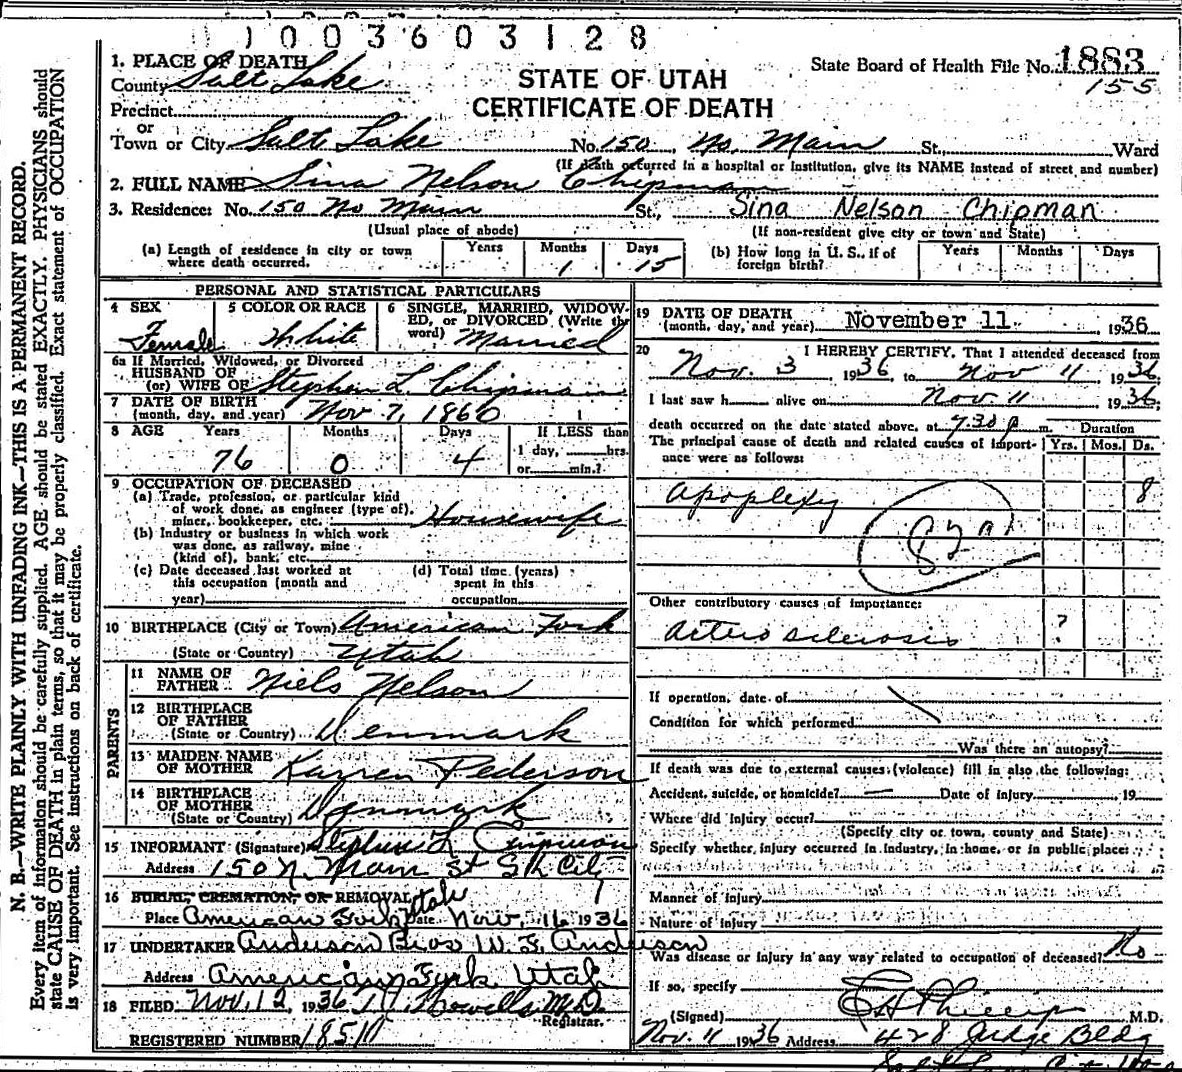 1003603128
1. PLACE OF DEATH
County Salt Lake
STATE OF UTAH
CERTIFICATE OF DEATH
State Board of Health File No. 1883
155
Precinct
or
Town or City Salt Lake No. 150 No. Main St., Ward
(If death occurred in a hospital or institution, give its NAME instead of street and number)
2. FULL NAME Sina Nelson Chipman
3. Residence: No. 150 No Main St., Sina Nelson Chipman
(Usual place of abode) (If non-resident give city or town and State)
(a) Length of residence in city or town where death occurred. Years Months 1 Days 15
(b) How long in U. S., if of foreign birth? Years Months Days
PERSONAL AND STATISTICAL PARTICULARS
4 SEX Female
5 COLOR OR RACE White
6 SINGLE, MARRIED, WIDOWED, or DIVORCED (Write the word) Married
6a If Married, Widowed, or Divorced
HUSBAND OF
(or) WIFE OF Stephen L. Chipman
7 DATE OF BIRTH
(month, day, and year) Nov 7, 1860
8 AGE Years 76 Months 0 Days 4 If LESS than 1 day, hrs. or min.?
9 OCCUPATION OF DECEASED
(a) Trade, profession, or particular kind
of work done, as engineer (type of),
miner, bookkeeper, etc. Housewife
(b) Industry or business in which work
was done, as railway, mine
(kind of), bank, etc.
(c) Date deceased last worked at
this occupation (month and
year)
(d) Total time (years)
spent in this
occupation
10 BIRTHPLACE (City or Town) American Fork
(State or Country) Utah
PARENTS
11 NAME OF
FATHER Niels Nelson
12 BIRTHPLACE
OF FATHER
(State or Country) Denmark
13 MAIDEN NAME
OF MOTHER Karren Pederson
14 BIRTHPLACE
OF MOTHER
(State or Country) Denmark
15 INFORMANT (Signature) Stephen L Chipman
Address 150 N. Main St S L City
16 BURIAL, CREMATION, OR REMOVAL Utah
Place American Fork Date Nov. 16 1936
17 UNDERTAKER Anderson Bros W. F. Anderson
Address American Fork Utah
18 FILED Nov. 12, 1936 Howells M.D.
Registrar.
REGISTERED NUMBER 18510
19 DATE OF DEATH
(month, day, and year) November 11. 1936
20 I HEREBY CERTIFY, That I attended deceased from
Nov. 3, 1936, to Nov 11, 1936,
I last saw h alive on Nov 11 1936,
death occurred on the date stated above, at 7.30 p m. Duration
The principal cause of death and related causes of importance were as follows: Yrs. Mos. Ds.
apoplexy 8
82a
Other contributory causes of importance:
Arterio sclerosis ?
If operation, date of
Condition for which performed
Was there an autopsy?
If death was due to external causes (violence) fill in also the following:
Accident, suicide, or homicide? — Date of injury 19
Where did injury occur?
(Specify city or town, county and State)
Specify whether injury occurred in industry, in home, or in public place:
Manner of injury
Nature of injury
Was disease or injury in any way related to occupation of deceased? No
If so, specify
(Signed) M.D.
Nov. 11 1936 Address 428 Judge Bldg
N. B.—WRITE PLAINLY WITH UNFADING INK—THIS IS A PERMANENT RECORD.
Every item of information should be carefully supplied. AGE should be stated EXACTLY. PHYSICIANS should
state CAUSE OF DEATH in plain terms, so that it may be properly classified. Exact statement of OCCUPATION
is very important. See instructions on back of certificate.